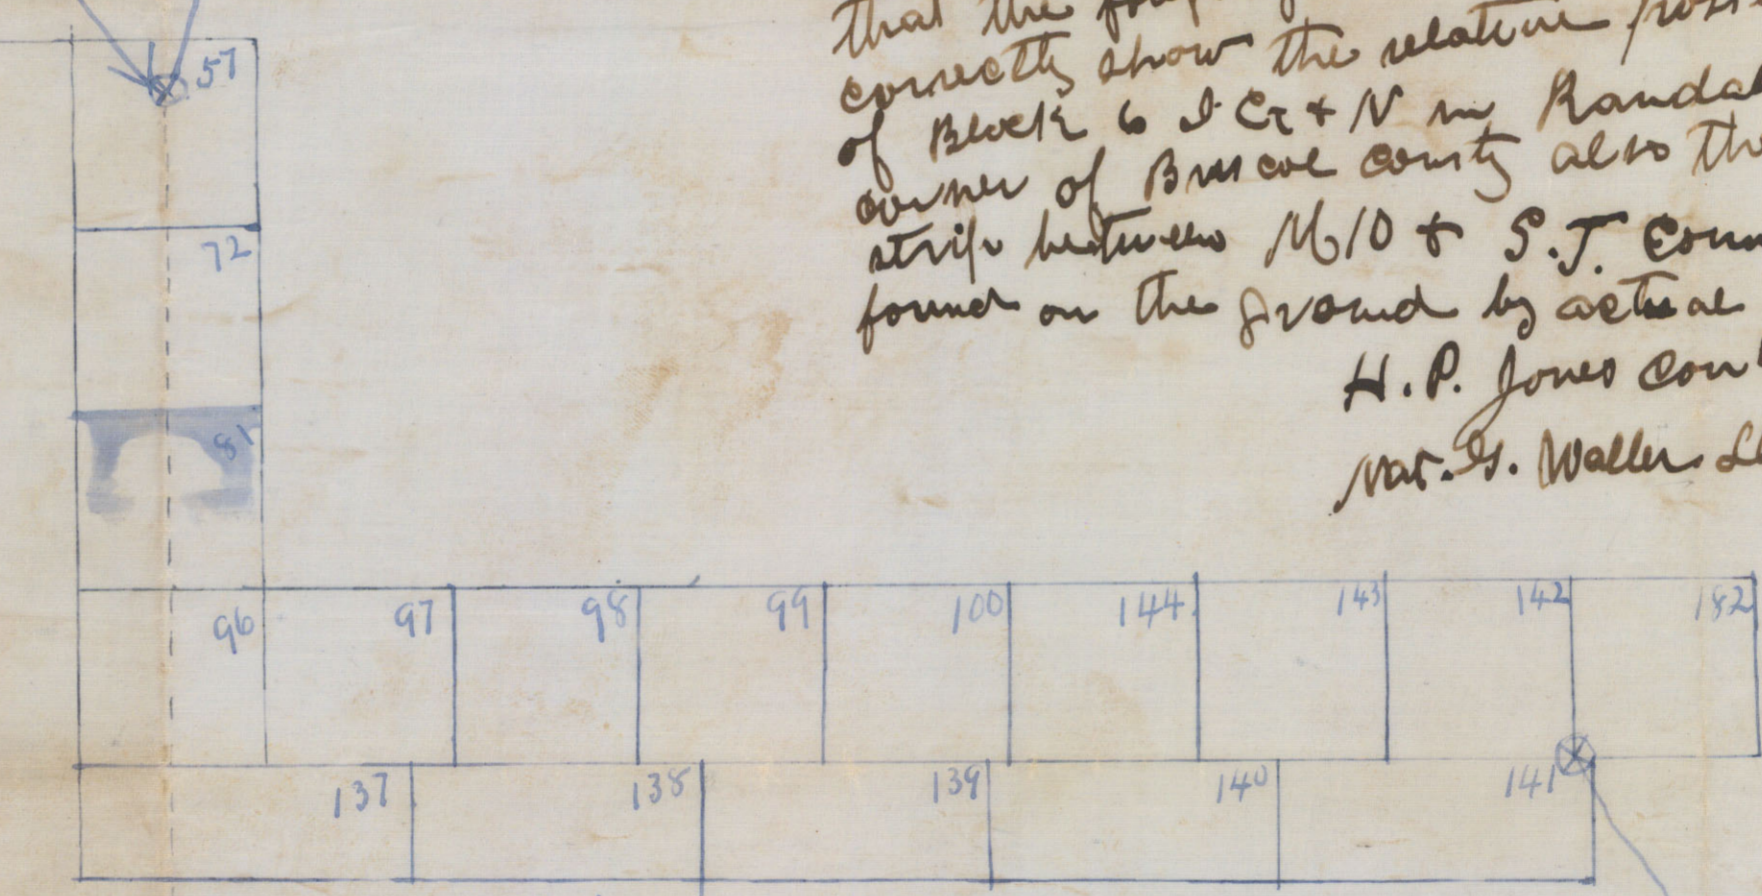 that the
correctly show the relative
of Block 6 I & G N in Randal
corner of Briscoe county also the
strip between M/O & S.T.
found on the ground by actual
H.P. Jones
Nat. G. Waller
57
72
81
96 97 98 99 100 144 143 142 182
137 138 139 140 141